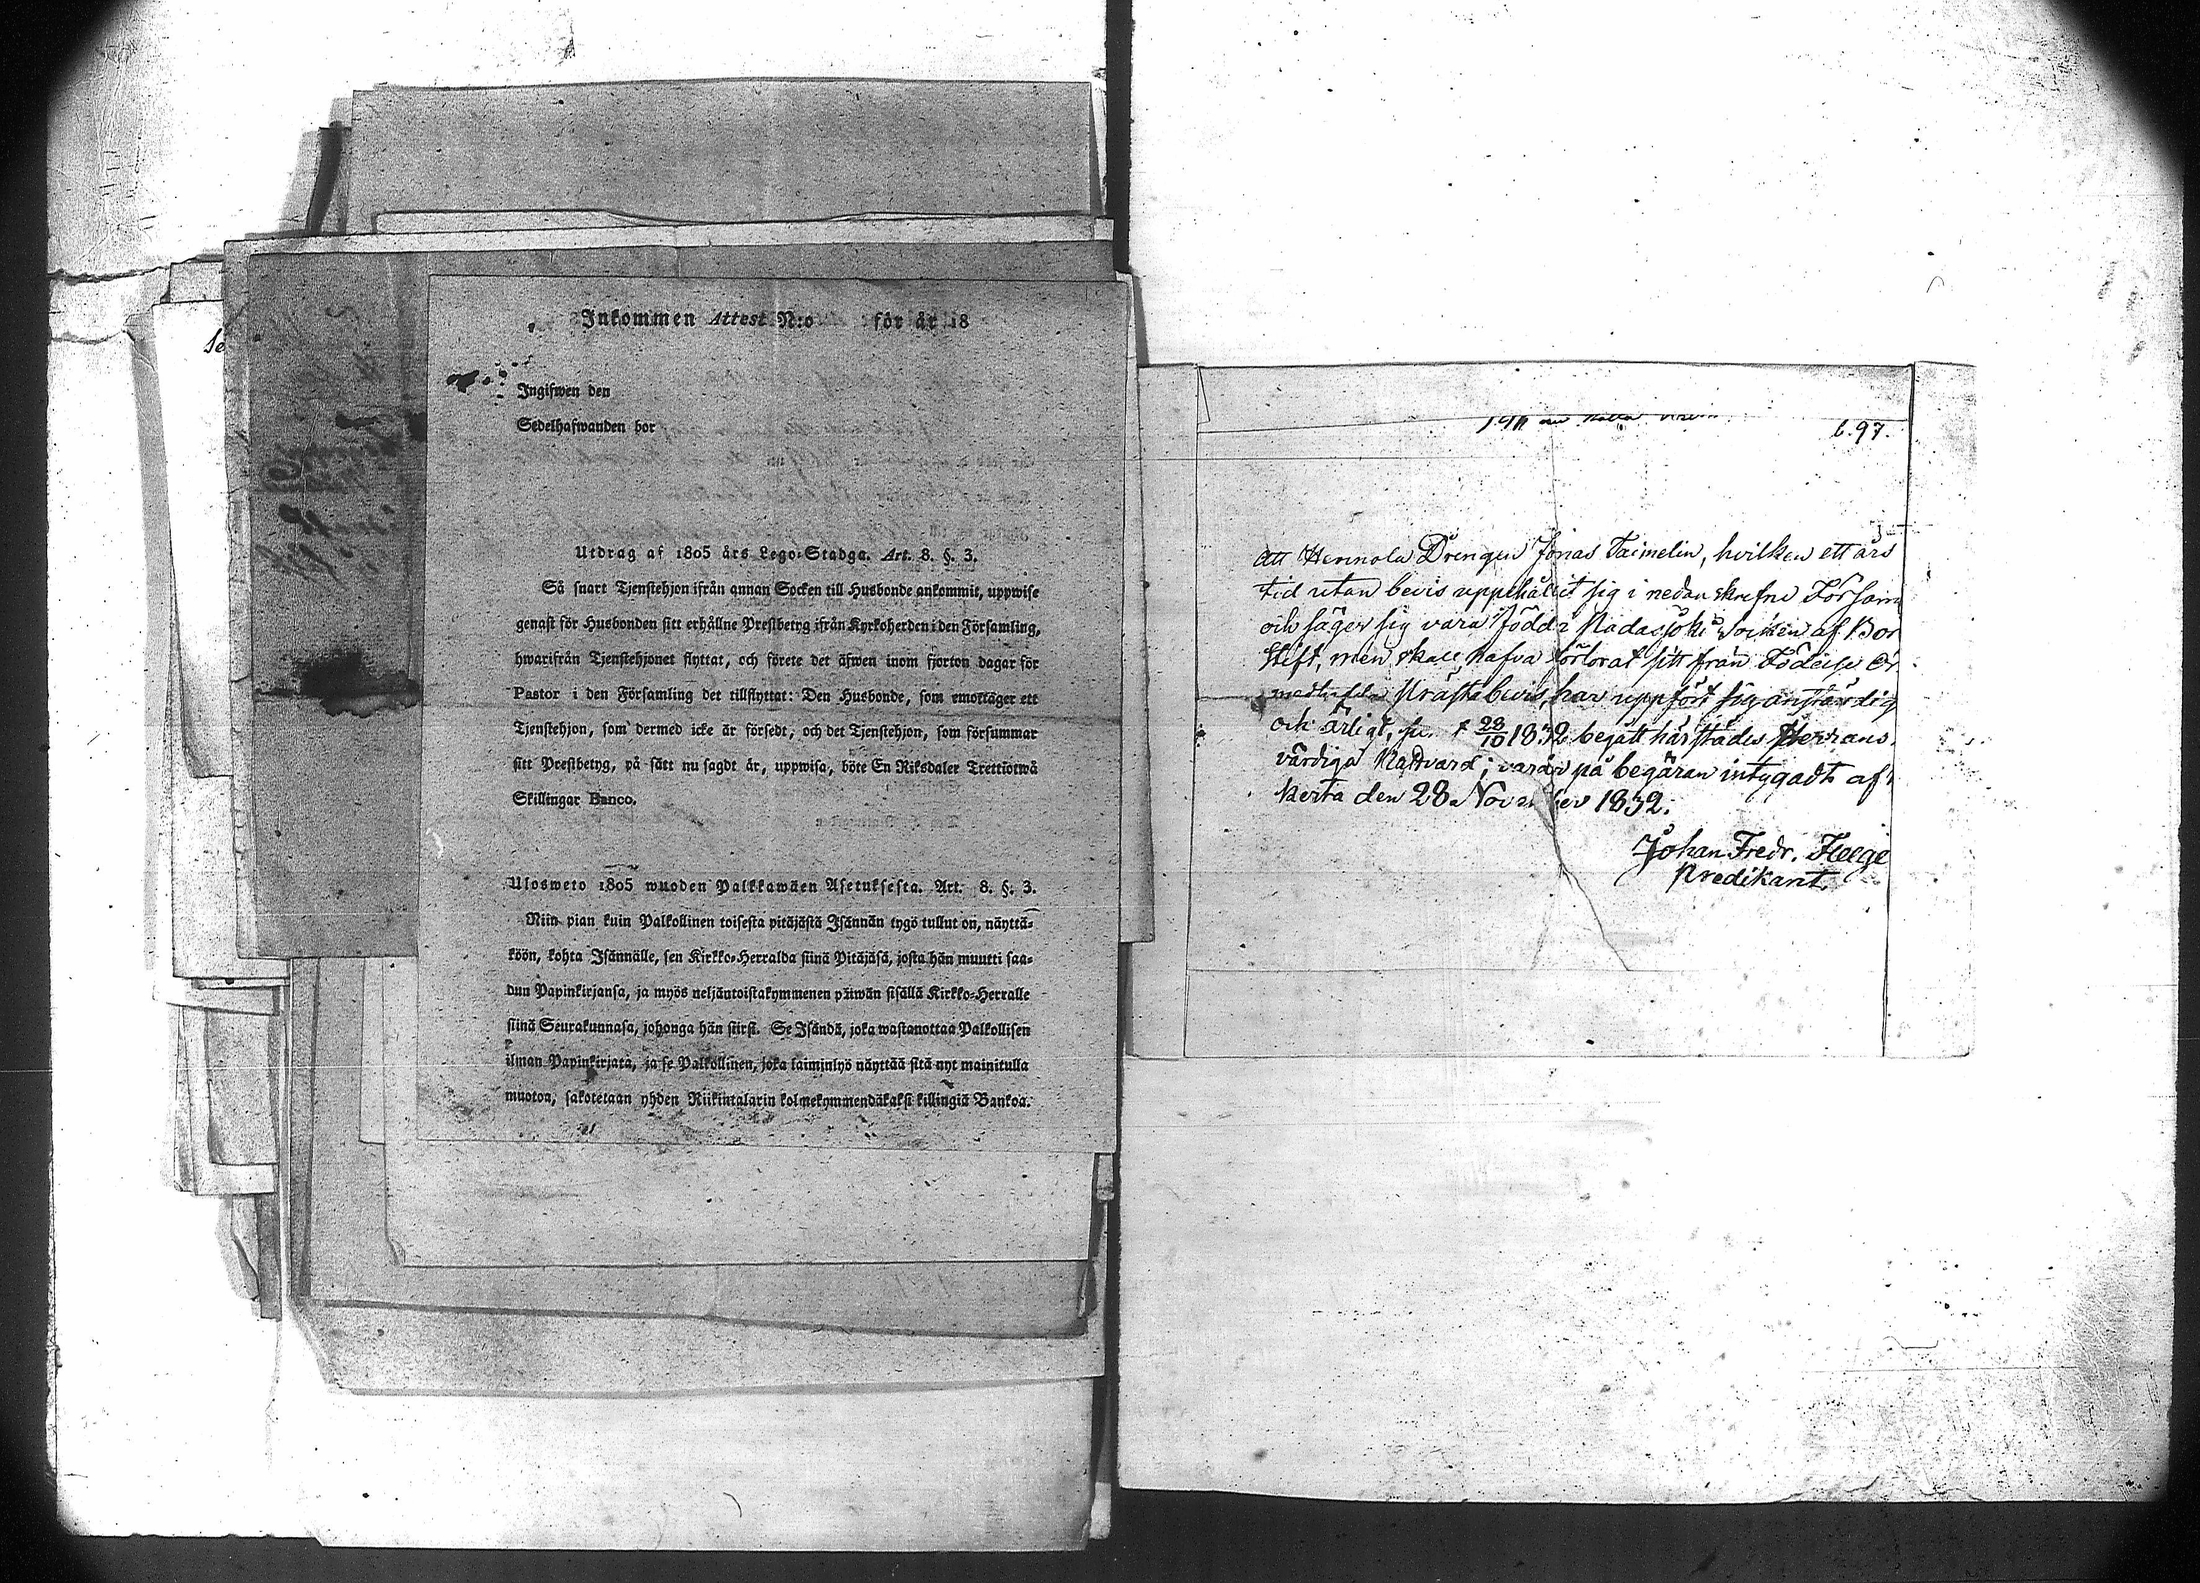 Inkommen Attest N:o för år 18
Ingifwen den
Sedelhafwanden bor
Utdrag af 1805 års Lego-Stadga. Art. 8. §. 3.
Så snart Tjenstehjon ifrån annan Socken till Husbonde ankommit, uppwise
genast för Husbonden sitt erhållne Prestbetyg ifrån Kyrkoherden i den Församling,
hwarifrån Tjenstehjonet flyttat, och förete det äfwen inom fjorton dagar för
Pastor i den Församling det tillflyttat: Den Husbonde, som emottager ett
Tjenstehjon, som dermed icke är försedt, och det Tjenstehjon, som försummar
sitt Prestbetyg, på sätt nu sagdt är, uppwisa, böte En Riksdaler Trettiotwå
Skillingar Banco.
Ulosweto 1805 wuoden Palkkawäen Asetuksesta. Art. 8. §. 3.
Niin pian kuin Palkollinen toisesta pitäjästä Isännän tygö tullut on, näyttä-
köön, kohta Isännälle, sen Kirkko-Herralda siinä Pitäjäsä, josta hän muutti saa-
dun Papinkirjansa, ja myös neljäntoistakymmenen päiwän sisällä Kirkko-Herralle
siinä Seurakunnasa, johonga hän siirsi. Se Isändä, joka wastanottaa Palkollisen
ilman Papinkirjata, ja se Palkollinen, joka laiminlyö näyttää sitä nyt mainitulla
muotoa, sakotetaan yhden Riikintalarin kolmekymmendäkaksi killingiä Bankoa.
Se
b. 97.
Att Hennola Drengen Jonas Taimelin, hvilken ett års
tid utan bevis uppehållit sig i nedanskrefne Försam
och säger sig vara född i Padasjoki Socken af Bor
Stift, men skall hafva förlorat sitt från Födelse Or
Prästabevis, har uppfört sig anständig
och ärligt, 28/10 1832 begått härstädes Herrans
värdiga Nattvard; varder på begäran intygadt af
Kerta den 28 November 1832.
Johan Fredr. Heege
Predikant.